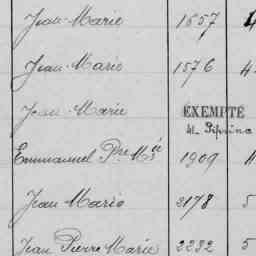 Jean-Marie 1657 4
Jean-Marie 1576 4
Jean-Marie EXEMPTÉ
Emmanuel Pre Mie 1909
Jean Marie 2178 5
Jean Pierre Marie 2232 5